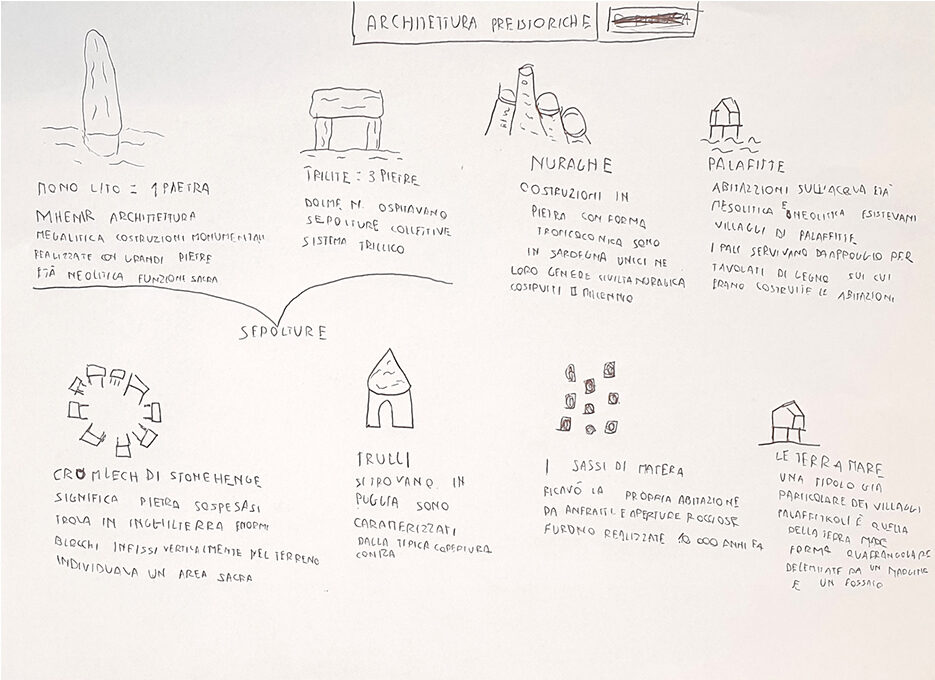 ARCHITETTURA PREISTORICHE
MONO LITO = 1 PAETRA
MHENIR ARCHITETTURA
MEGALITICA COSTRUZIONI MONUMENTALI
REALIZZATE CON GRANDI PIETRE
ETÀ NEOLITICA FUNZIONE SACRA
TRILITE = 3 PIETRE
DOLME N. OSPITAVANO
SEPOLTURE COLLETIVE
SISTEMA TRILLICO
SEPOLTURE
NURAGHE
COSTRUZIONI IN
PIETRA CON FORMA
TRONCOCONICA SONO
IN SARDEGNA UNICI NE
LORO GENERE CIVILTÀ NURAGICA
COSTRUITI II MILLENNIO
PALAFITTE
ABITAZZIONI SULL'ACQUA ETÀ
MESOLITICA E NEOLITICA ESISTEVANI
VILLAGGI DI PALAFFITTE
I PALI SERVIVANO DA APPOGGIO PER
TAVOLATI DI LEGNO SUI CUI
ERANO COSTRUITE LE ABITAZIONI
CROMLECH DI STONEHENGE
SIGNIFICA PIETRA SOSPESASI
TROVA IN INGHILTERRA ENORMI
BLOCCHI INFISSI VERTICALMENTE NEL TERRENO
INDIVIDUAVA UN AREA SACRA
TRULLI
SI TROVANO IN
PUGLIA SONO
CARATTERIZZATI
DALLA TIPICA COPERTURA
CONICA
I SASSI DI MATERA
RICAVÓ LA PROPRIA ABITAZIONE
DA ANFRATTI E APERTURE ROCCIOSE
FURONO REALIZZATE 10 000 ANNI FA
LE TERRA MARE
UNA TIPOLO GIA
PARTICOLARE DEI VILLAGGI
PALAFFITICOLI È QUELLA
DELLA TERRA MARE
FORMA QUADRANGOLARE
DELEMITATE DA UN MARGINE
E UN FOSSATO